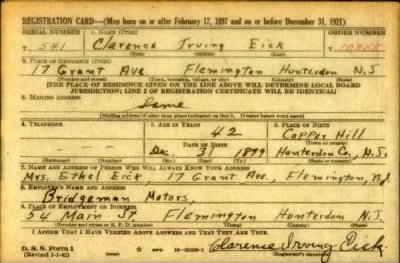 REGISTRATION CARD—(Men born on or after February 17, 1897 and on or before December 31, 1921)
SERIAL NUMBER 1. NAME (Print) ORDER NUMBER
T 541 Clarence Irving Eick 10858
(First) (Middle) (Last)
2. PLACE OF RESIDENCE (Print)
17 Grant Ave Flemington Hunterdon N.J.
(Number and street) (Town, township, village, or city) (County) (State)
[THE PLACE OF RESIDENCE GIVEN ON THE LINE ABOVE WILL DETERMINE LOCAL BOARD
JURISDICTION; LINE 2 OF REGISTRATION CERTIFICATE WILL BE IDENTICAL]
3. MAILING ADDRESS
Same
[Mailing address if other than place indicated on line 2. If same insert word same]
4. TELEPHONE 5. AGE IN YEARS 6. PLACE OF BIRTH
42 Copper Hill
DATE OF BIRTH (Town or county)
Dec. 31 1899 Hunterdon Co., N.J.
(Exchange) (Number) (Mo.) (Day) (Yr.) (State or country)
7. NAME AND ADDRESS OF PERSON WHO WILL ALWAYS KNOW YOUR ADDRESS
Mrs. Ethel Eick, 17 Grant Ave., Flemington, N.J.
8. EMPLOYER'S NAME AND ADDRESS
Bridgeman Motors,
9. PLACE OF EMPLOYMENT OR BUSINESS
54 Main St. Flemington Hunterdon N.J.
(Number and street or R. F. D. number) (Town) (County) (State)
I AFFIRM THAT I HAVE VERIFIED ABOVE ANSWERS AND THAT THEY ARE TRUE.
D. S. S. FORM 1
(Revised 1-1-42) Clarence Irving Eick
(Registrant's signature)